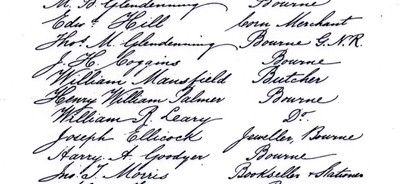 M. B. Glendenning Bourne
Edwd. Hill Corn Merchant
Thos. M. Glendenning Bourne G.N.R.
J. H. Coggins Bourne
William Mansfield Butcher
Henry William Palmer Bourne
William R. Leary Do.
Joseph Ellicock Jeweller, Bourne
Harry A. Goodyer Bourne
Jno. T. Morris Bookseller & Stationer